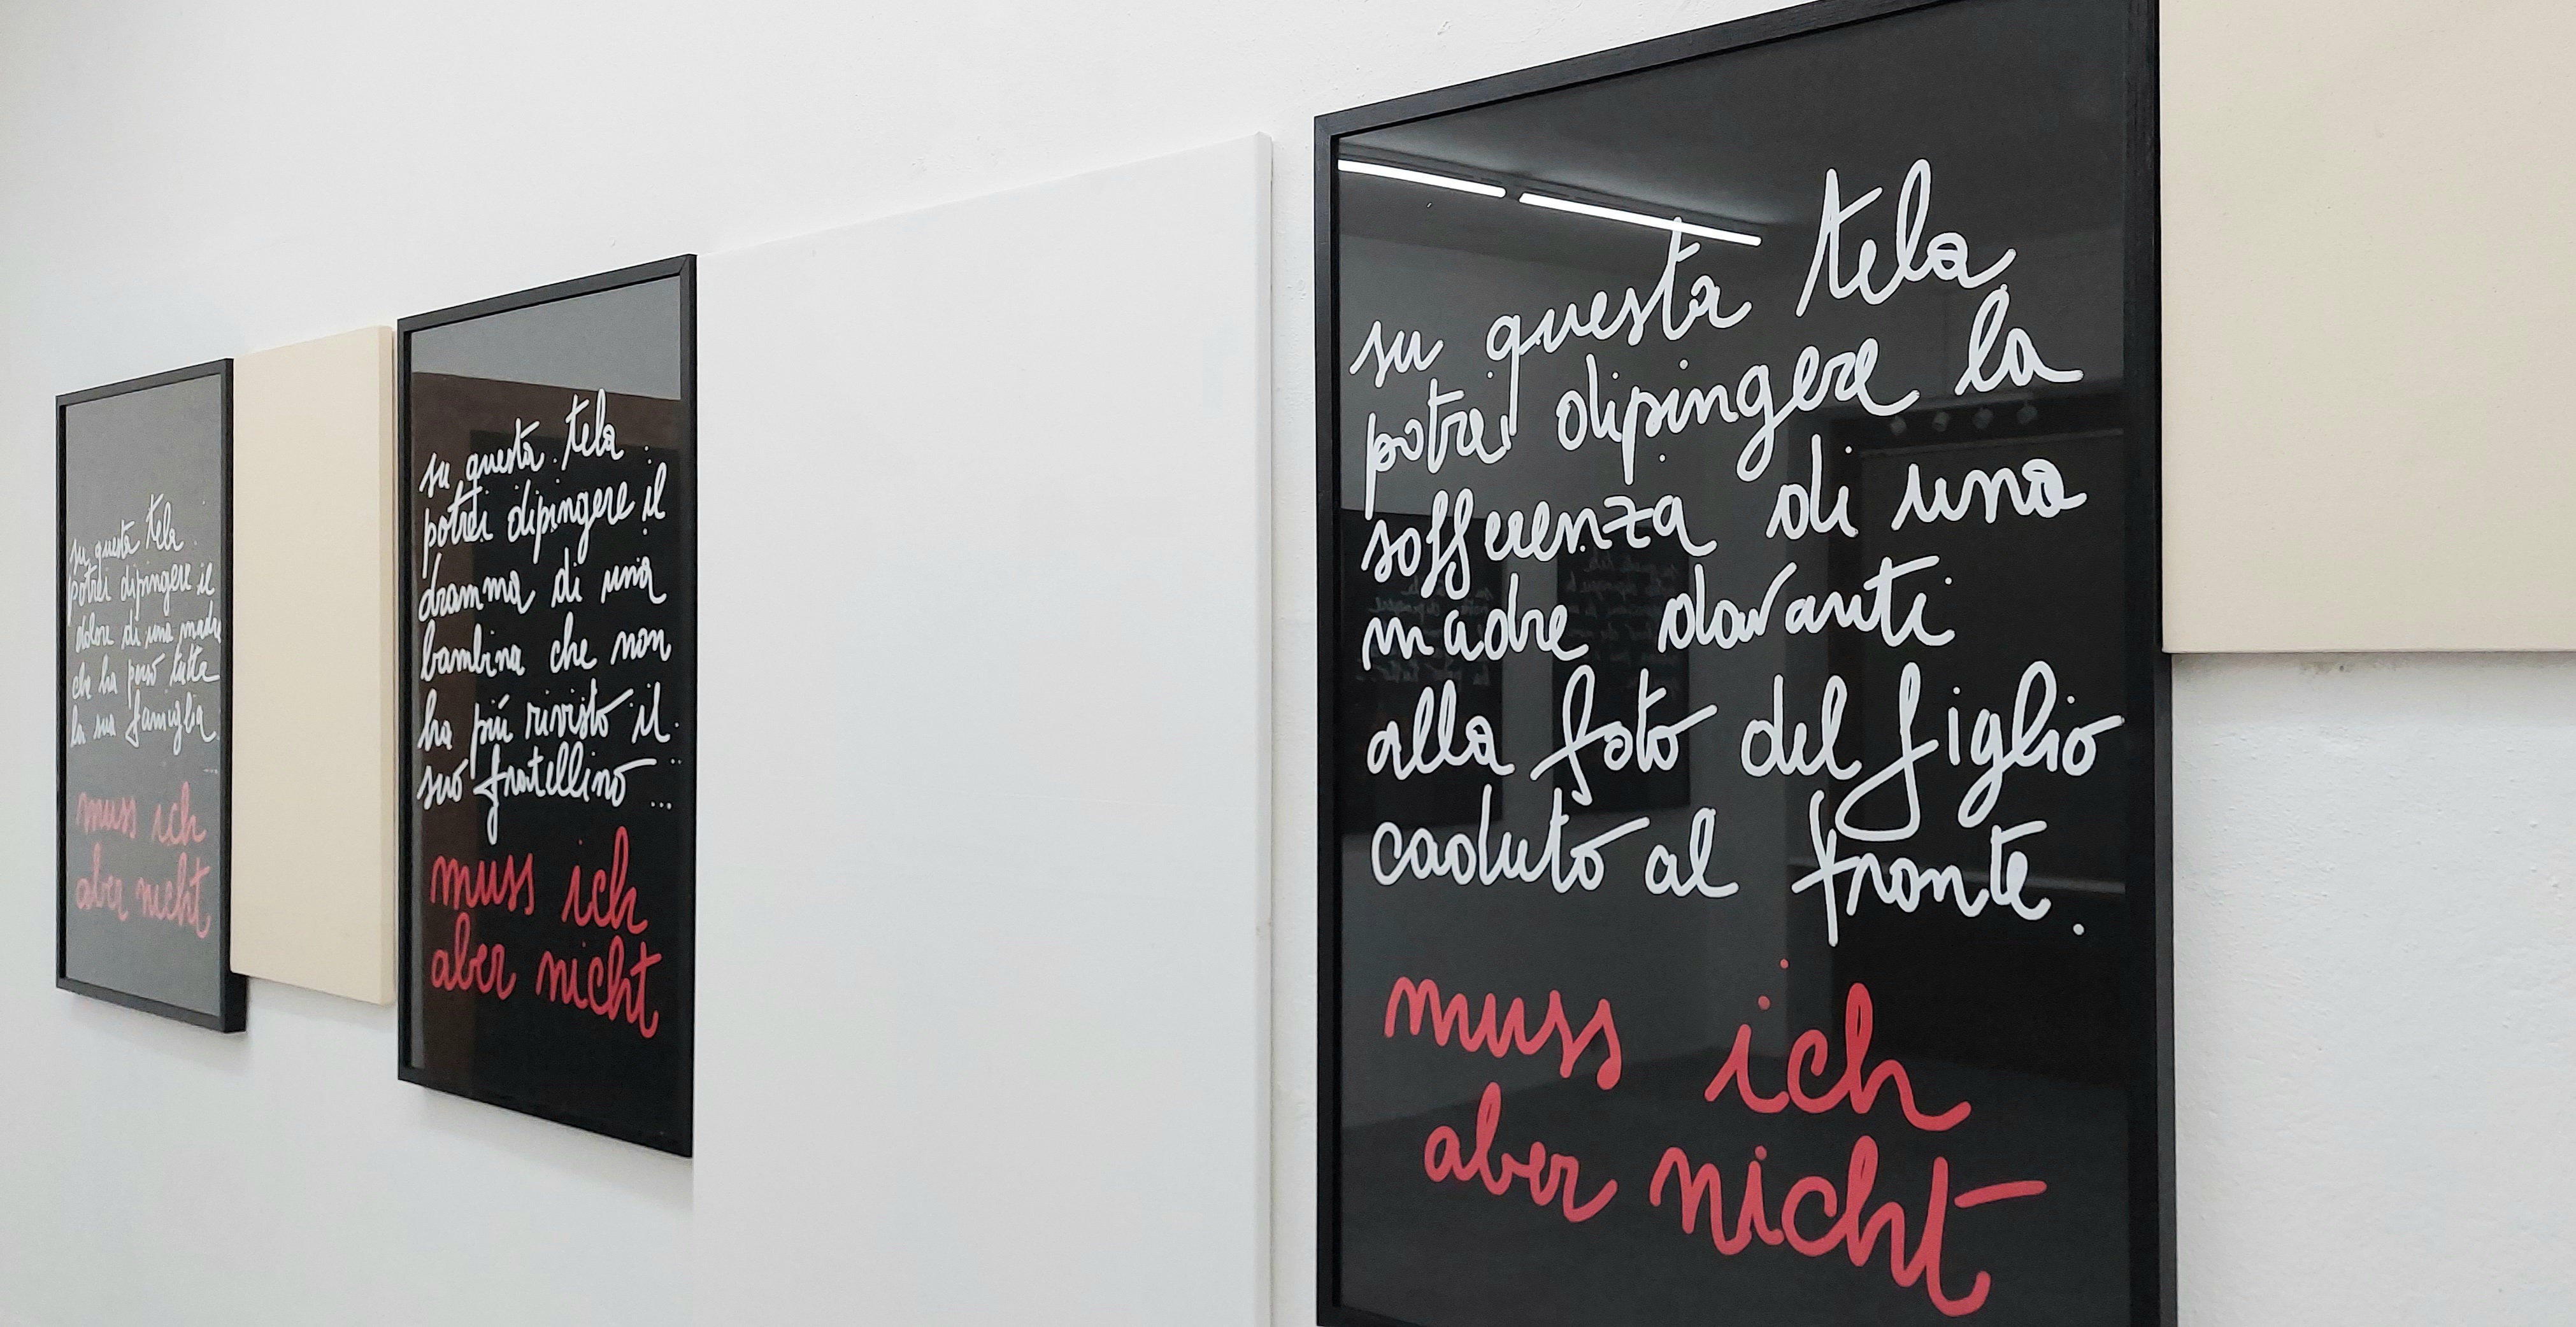 su questa tela
potrei dipingere il
dolore di una madre
che ha perso tutta
la sua famiglia
...
muss ich
aber nicht
su questa tela
potrei dipingere il
dramma di una
bambina che non
ha più rivisto il
suo fratellino ...
muss ich
aber nicht
su questa tela
potrei dipingere la
sofferenza di una
madre davanti
alla foto del figlio
caduto al fronte.
muss ich
aber nicht